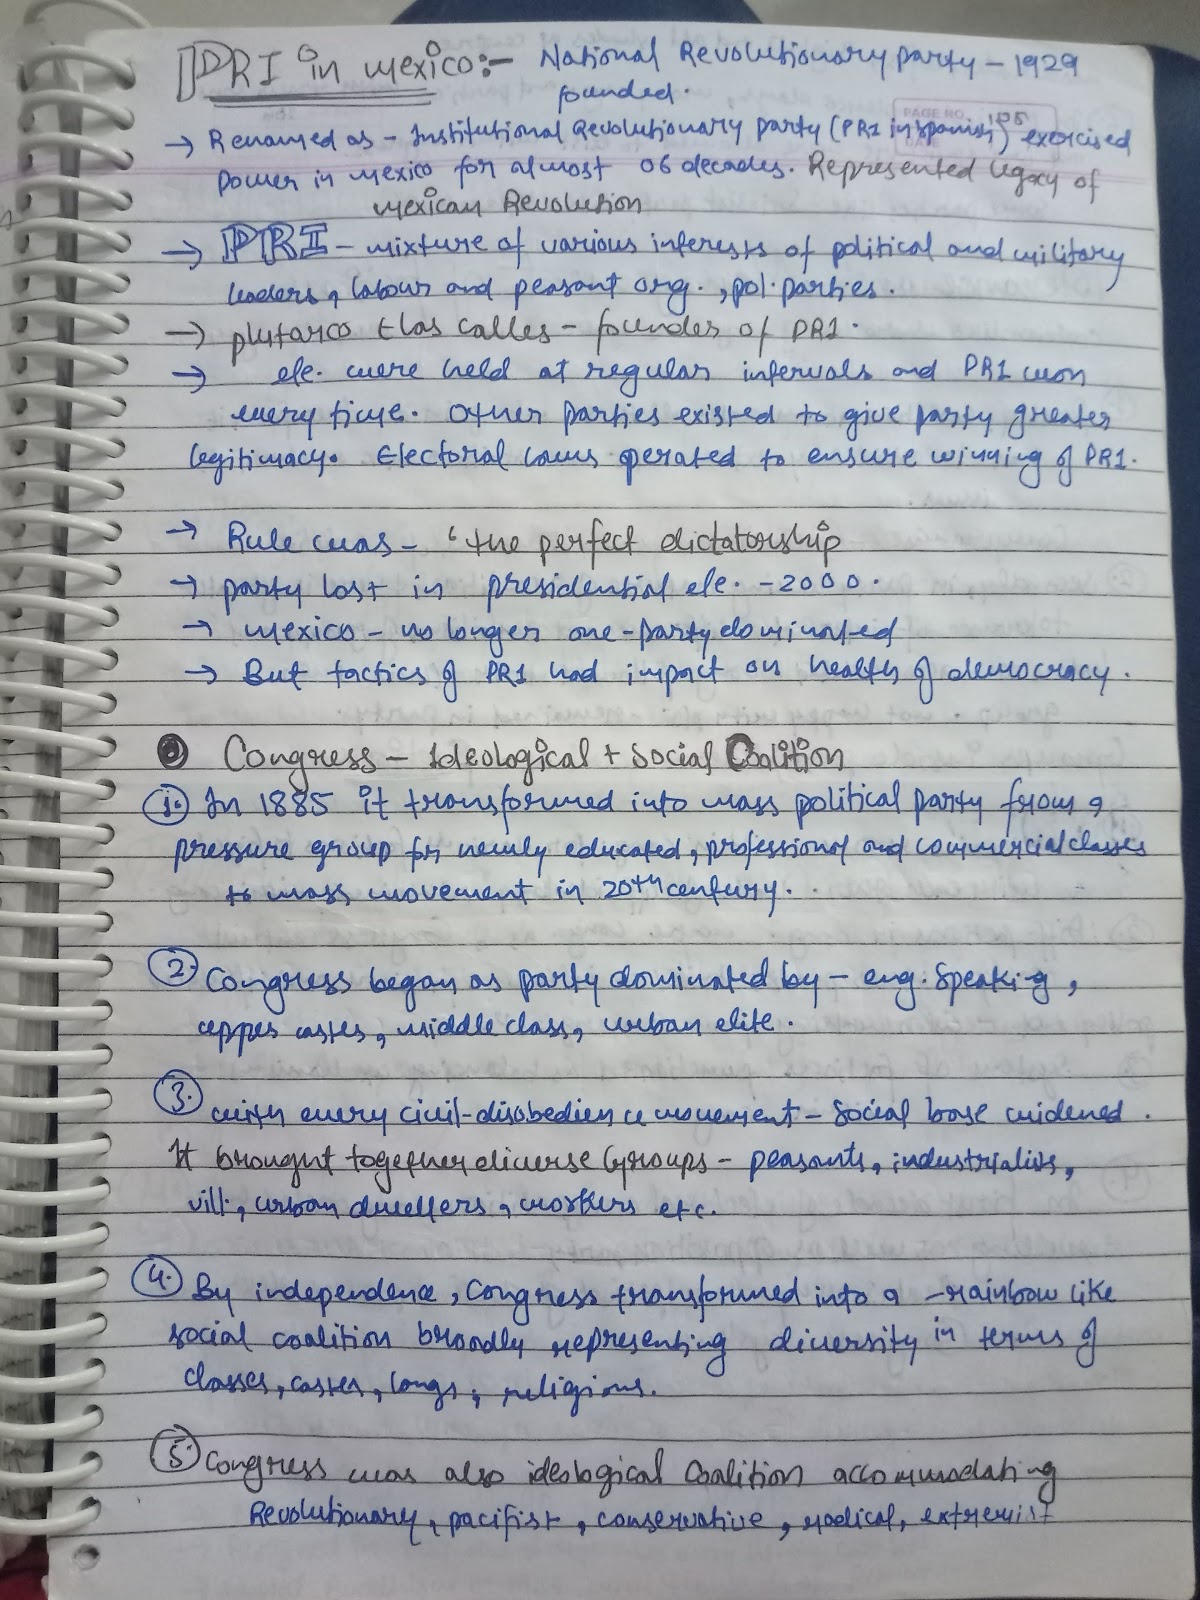 PRI in mexico:- National Revolutionary party - 1929
founded.
PAGE NO. 105
→ Renamed as - Institutional Revolutionary party (PRI in spanish) exercised
power in mexico for almost 06 decades. Represented legacy of
mexican Revolution
→ PRI - mixture of various interests of political and military
leaders, labour and peasant org., pol. parties.
→ plutarco Elas calles - founder of PRI.
→ ele. were held at regular intervals and PRI won
every time. Other parties existed to give party greater
legitimacy. Electoral laws operated to ensure winning of PRI.
→ Rule was - ‘the perfect dictatorship
→ party lost in presidential ele. - 2000.
→ mexico - no longer one-party dominated
→ But tactics of PRI had impact on health of democracy.
Congress - Ideological + Social Coalition
1. In 1885 it transformed into mass political party from a
pressure group for newly educated, professional and commercial classes
to mass movement in 20th century.
2. Congress began as party dominated by - eng. Speaking,
upper castes, middle class, urban elite.
3. with every civil-disobedience movement - Social base widened.
It brought together diverse Groups - peasants, industrialists,
vill., urban dwellers, workers etc.
4. By independence, Congress transformed into a - rainbow like
social coalition broadly representing diversity in terms of
classes, castes, langs, religions.
5. Congress was also ideological Coalition accommodating
Revolutionary, pacifist, conservative, radical, extremist